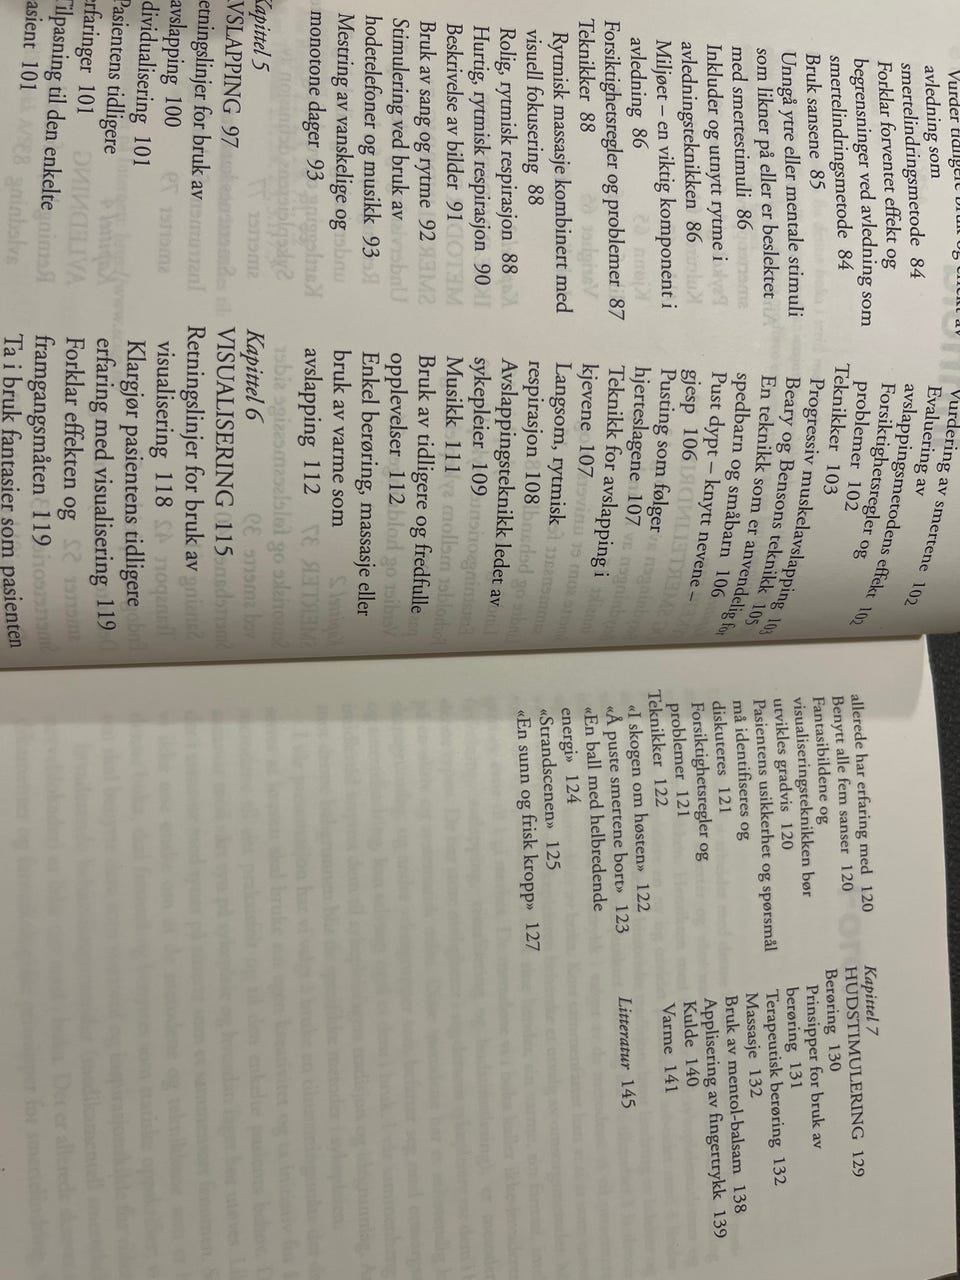 Vurder tidligere bruk og effekt av
avledning som
smertelindringsmetode 84
Forklar forventet effekt og
begrensninger ved avledning som
smertelindringsmetode 84
Bruk sansene 85
Unngå ytre eller mentale stimuli
som likner på eller er beslektet
med smertestimuli 86
Inkluder og utnytt rytme i
avledningsteknikken 86
Miljøet – en viktig komponent i
avledning 86
Forsiktighetsregler og problemer 87
Teknikker 88
Rytmisk massasje kombinert med
visuell fokusering 88
Rolig, rytmisk respirasjon 88
Hurtig, rytmisk respirasjon 90
Beskrivelse av bilder 91
Bruk av sang og rytme 92
Stimulering ved bruk av
hodetelefoner og musikk 93
Mestring av vanskelige og
monotone dager 93
Kapittel 5
AVSLAPPING 97
Retningslinjer for bruk av
avslapping 100
dividualisering 101
Pasientens tidligere
erfaringer 101
Tilpasning til den enkelte
pasient 101
Vurdering av smertene 102
Evaluering av
avslappingsmetodens effekt 102
Forsiktighetsregler og
problemer 102
Teknikker 103
Progressiv muskelavslapping 103
Beary og Bensons teknikk 105
En teknikk som er anvendelig for
spedbarn og småbarn 106
Pust dypt – knytt nevene –
gjesp 106
Pusting som følger
hjerteslagene 107
Teknikk for avslapping i
kjevene 107
Langsom, rytmisk
respirasjon 108
Avslappingsteknikk ledet av
sykepleier 109
Musikk 111
Bruk av tidligere og fredfulle
opplevelser 112
Enkel berøring, massasje eller
bruk av varme som
avslapping 112
Kapittel 6
VISUALISERING 115
Retningslinjer for bruk av
visualisering 118
Klargjør pasientens tidligere
erfaring med visualisering 119
Forklar effekten og
framgangsmåten 119
Ta i bruk fantasier som pasienten
allerede har erfaring med 120
Benytt alle fem sanser 120
Fantasibildene og
visualiseringsteknikken bør
utvikles gradvis 120
Pasientens usikkerhet og spørsmål
må identifiseres og
diskuteres 121
Forsiktighetsregler og
problemer 121
Teknikker 122
«I skogen om høsten» 122
«Å puste smertene bort» 123
«En ball med helbredende
energi» 124
«Strandscenen» 125
«En sunn og frisk kropp» 127
Kapittel 7
HUDSTIMULERING 129
Berøring 130
Prinsipper for bruk av
berøring 131
Terapeutisk berøring 132
Massasje 132
Bruk av mentol-balsam 138
Applisering av fingertrykk 139
Kulde 140
Varme 141
Litteratur 145